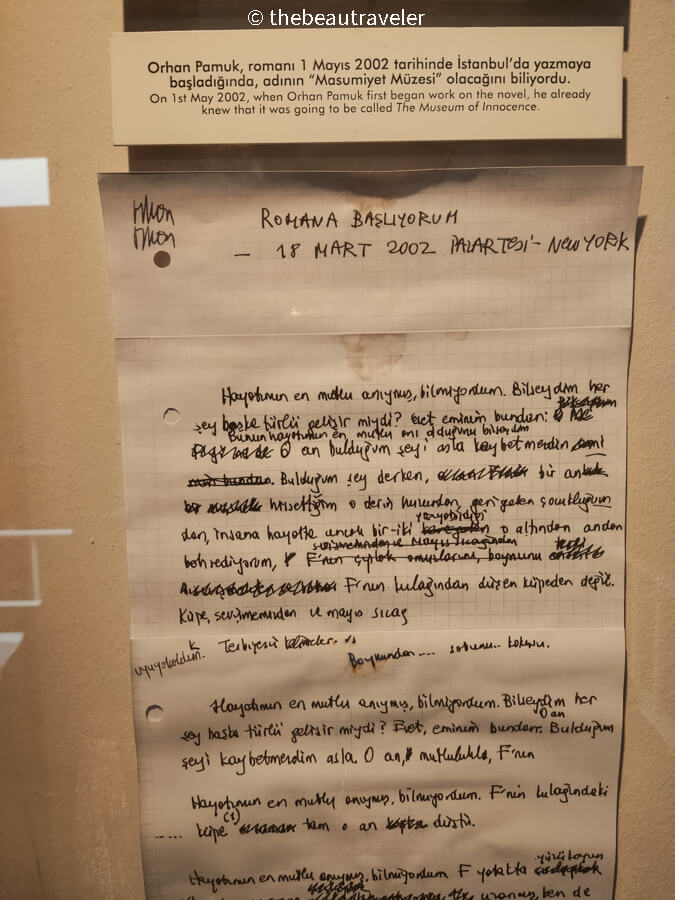 © thebeautraveler
Orhan Pamuk, romanı 1 Mayıs 2002 tarihinde İstanbul'da yazmaya
başladığında, adının "Masumiyet Müzesi" olacağını biliyordu.
On 1st May 2002, when Orhan Pamuk first began work on the novel, he already
knew that it was going to be called The Museum of Innocence.
ROMANA BAŞLIYORUM
— 18 MART 2002 PAZARTESİ - NEW YORK
Hayatımın en mutlu anıymış, bilmiyordum. Bilseydim her
şey başka türlü gelişir miydi? Evet eminim bundan:
Bunun hayatımın en mutlu anı olduğunu bilseydim
O an bulduğum şeyi asla kaybetmezdim
Bulduğum şey derken, bir an
hissettiğim o derin huzurdan, geri gelen çocukluğum
dan, insana hayatta ancak bir-iki yaşayabildiği o altından andan
bahsediyorum, F'nin çıplak omuzlarını, boynunu
F'nin kulağından düşen küpeden değil.
Küpe, sevişmemizden ve mayıs sıcağ
Terbiyesiz kelimeler.
Boynundan .... sabunu.. kokusu.
Hayatımın en mutlu anıymış, bilmiyordum. Bilseydim her
şey başka türlü gelişir miydi? Evet, eminim bundan. O an Bulduğum
şeyi kaybetmezdim asla. O an, mutlulukla, F'nin
Hayatımın en mutlu anıymış, bilmiyordum. F'nin kulağındaki
..... küpe (1) tam o an düştü.
Hayatımın en mutlu anıymış, bilmiyordum. F yatakta
uzanmış, ben de